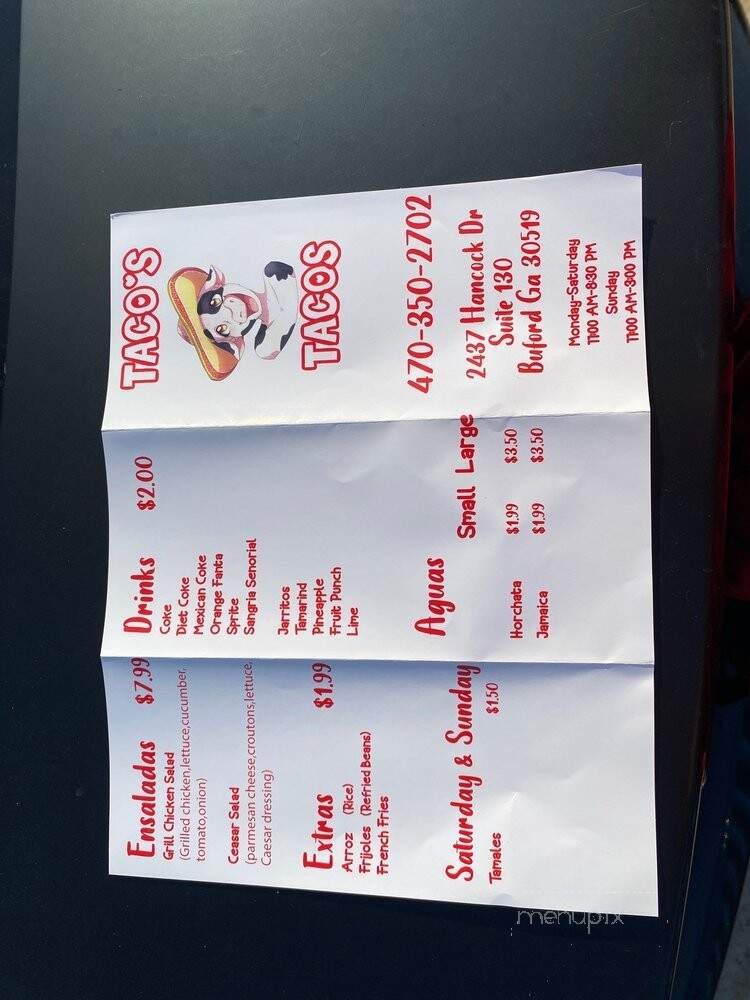 Ensaladas $7.99
Grill Chicken Salad
(Grilled chicken,lettuce,cucumber,
tomato,onion)
Ceasar Salad
(parmesan cheese,croutons,lettuce,
Caesar dressing)
Extras $1.99
Arroz (Rice)
Frijoles (Refried Beans)
French Fries
Saturday & Sunday
Tamales $1.50
Drinks $2.00
Coke
Diet Coke
Mexican Coke
Orange Fanta
Sprite
Sangria Senorial
Jarritos
Tamarind
Pineapple
Fruit Punch
Lime
Aguas
Small Large
Horchata $1.99 $3.50
Jamaica $1.99 $3.50
TACO'S
TACOS
470-350-2702
2437 Hancock Dr
Suite 130
Buford Ga 30519
Monday-Saturday
11:00 AM-8:30 PM
Sunday
11:00 AM-3:00 PM
menupix